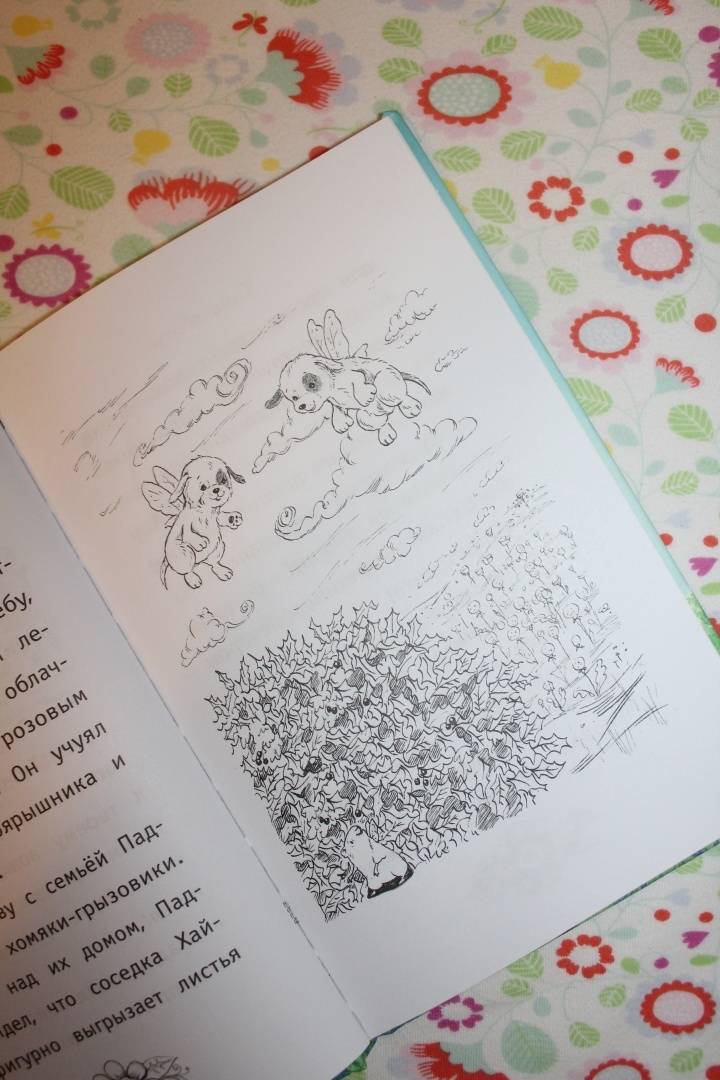 т-
ебу,
ле-
облач-
розовым
Он учуял
ярышника и
ву с семьёй Пад-
хомяки-грызовики.
над их домом, Пад-
дел, что соседка Хай-
игурно выгрызает листья